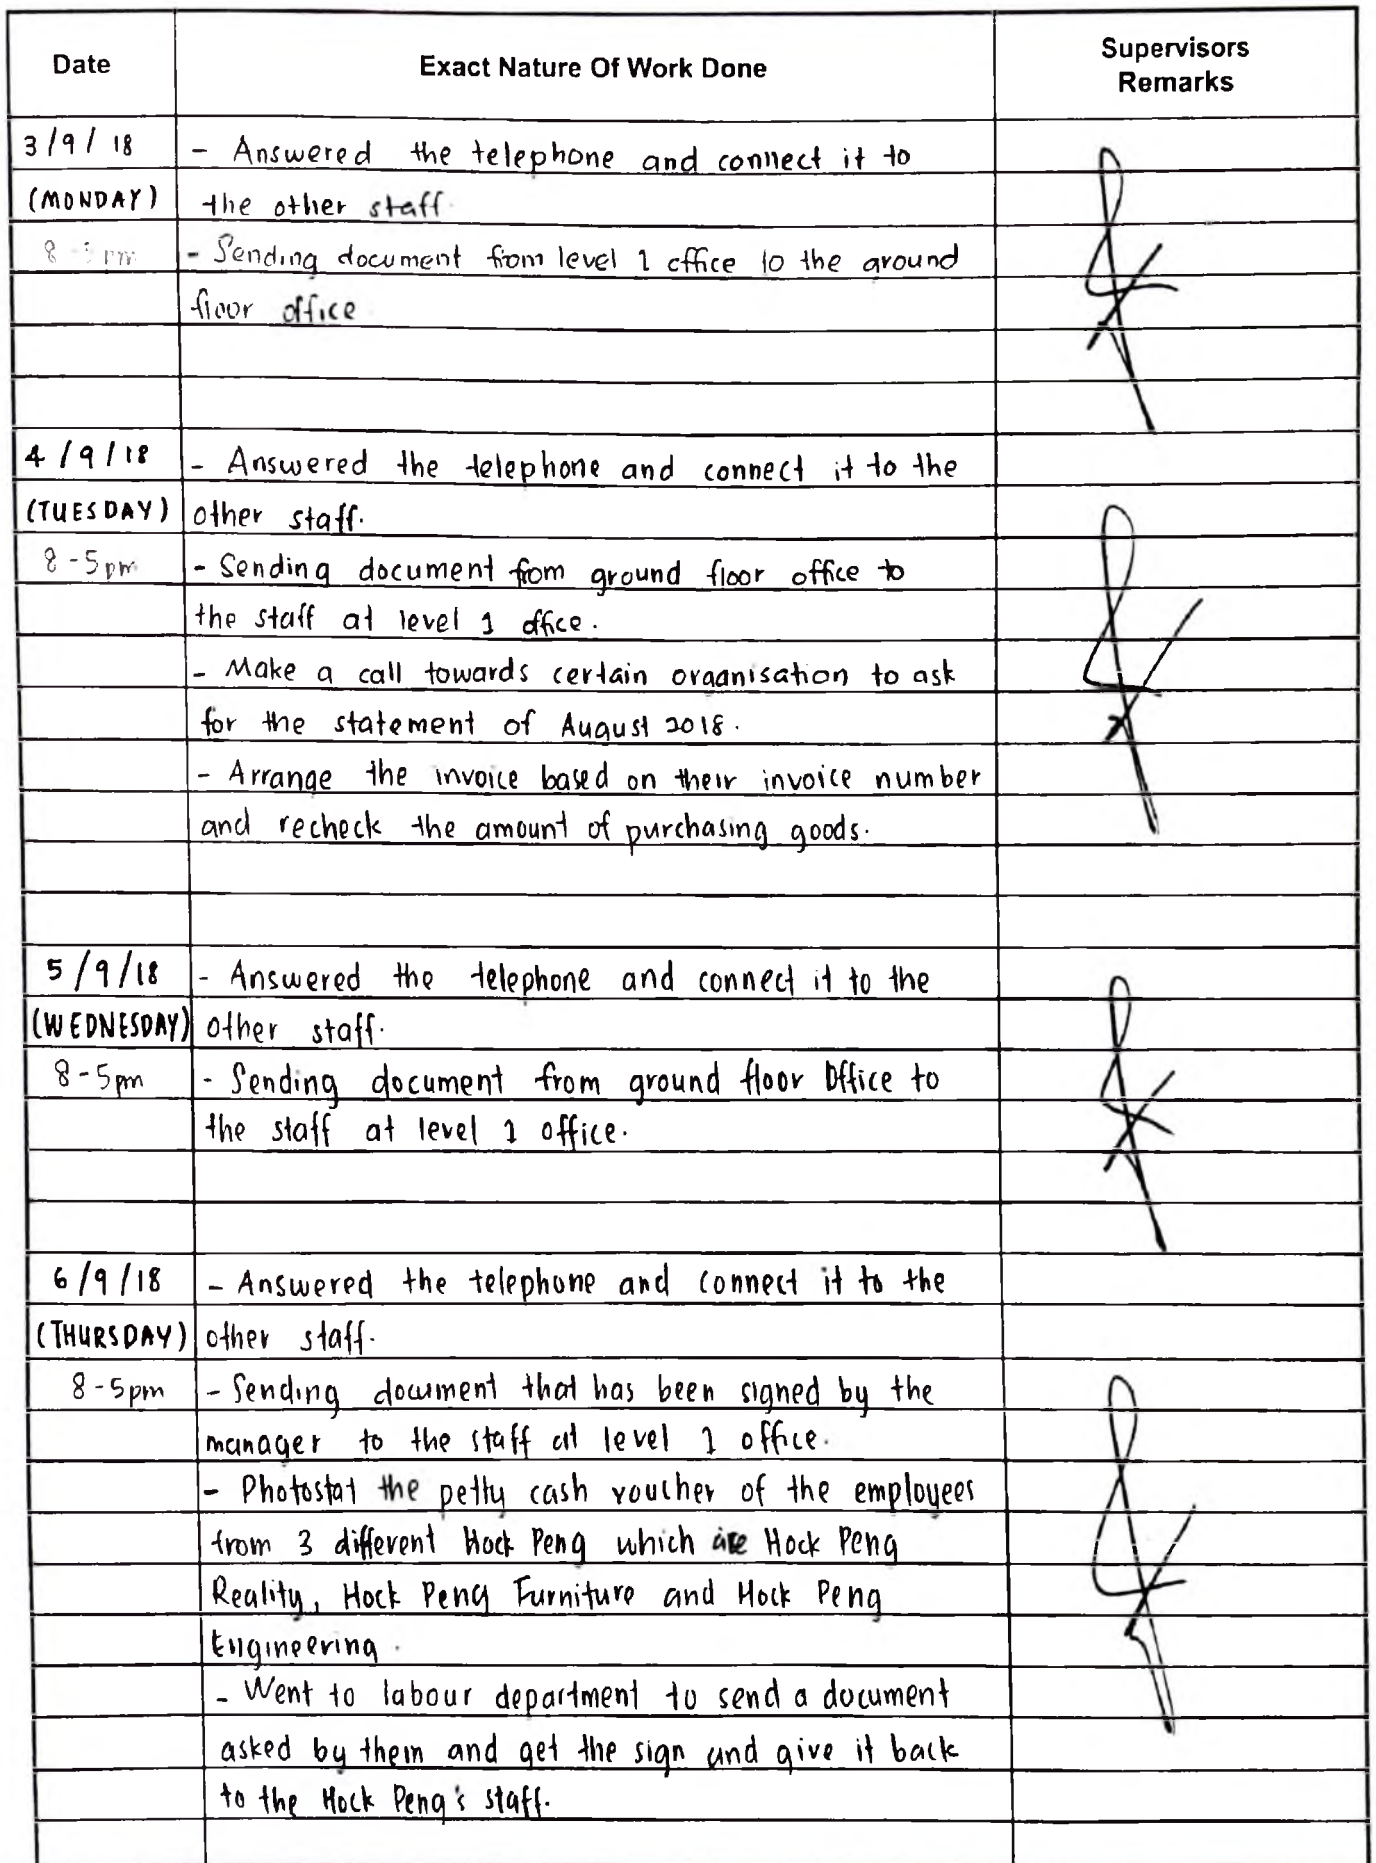 Date Exact Nature Of Work Done Supervisors Remarks
3/9/18 - Answered the telephone and connect it to
(MONDAY) the other staff.
8-5pm - Sending document from level 1 office to the ground
floor office
4/9/18 - Answered the telephone and connect it to the
(TUESDAY) other staff.
8-5pm - Sending document from ground floor office to
the staff at level 1 office.
- Make a call towards certain organisation to ask
for the statement of August 2018.
- Arrange the invoice based on their invoice number
and recheck the amount of purchasing goods.
5/9/18 - Answered the telephone and connect it to the
(WEDNESDAY) other staff.
8-5pm - Sending document from ground floor Office to
the staff at level 1 office.
6/9/18 - Answered the telephone and connect it to the
(THURSDAY) other staff.
8-5pm - Sending document that has been signed by the
manager to the staff at level 1 office.
- Photostat the petty cash voucher of the employees
from 3 different Hock Peng which are Hock Peng
Reality, Hock Peng Furniture and Hock Peng
Engineering.
- Went to labour department to send a document
asked by them and get the sign and give it back
to the Hock Peng's staff.